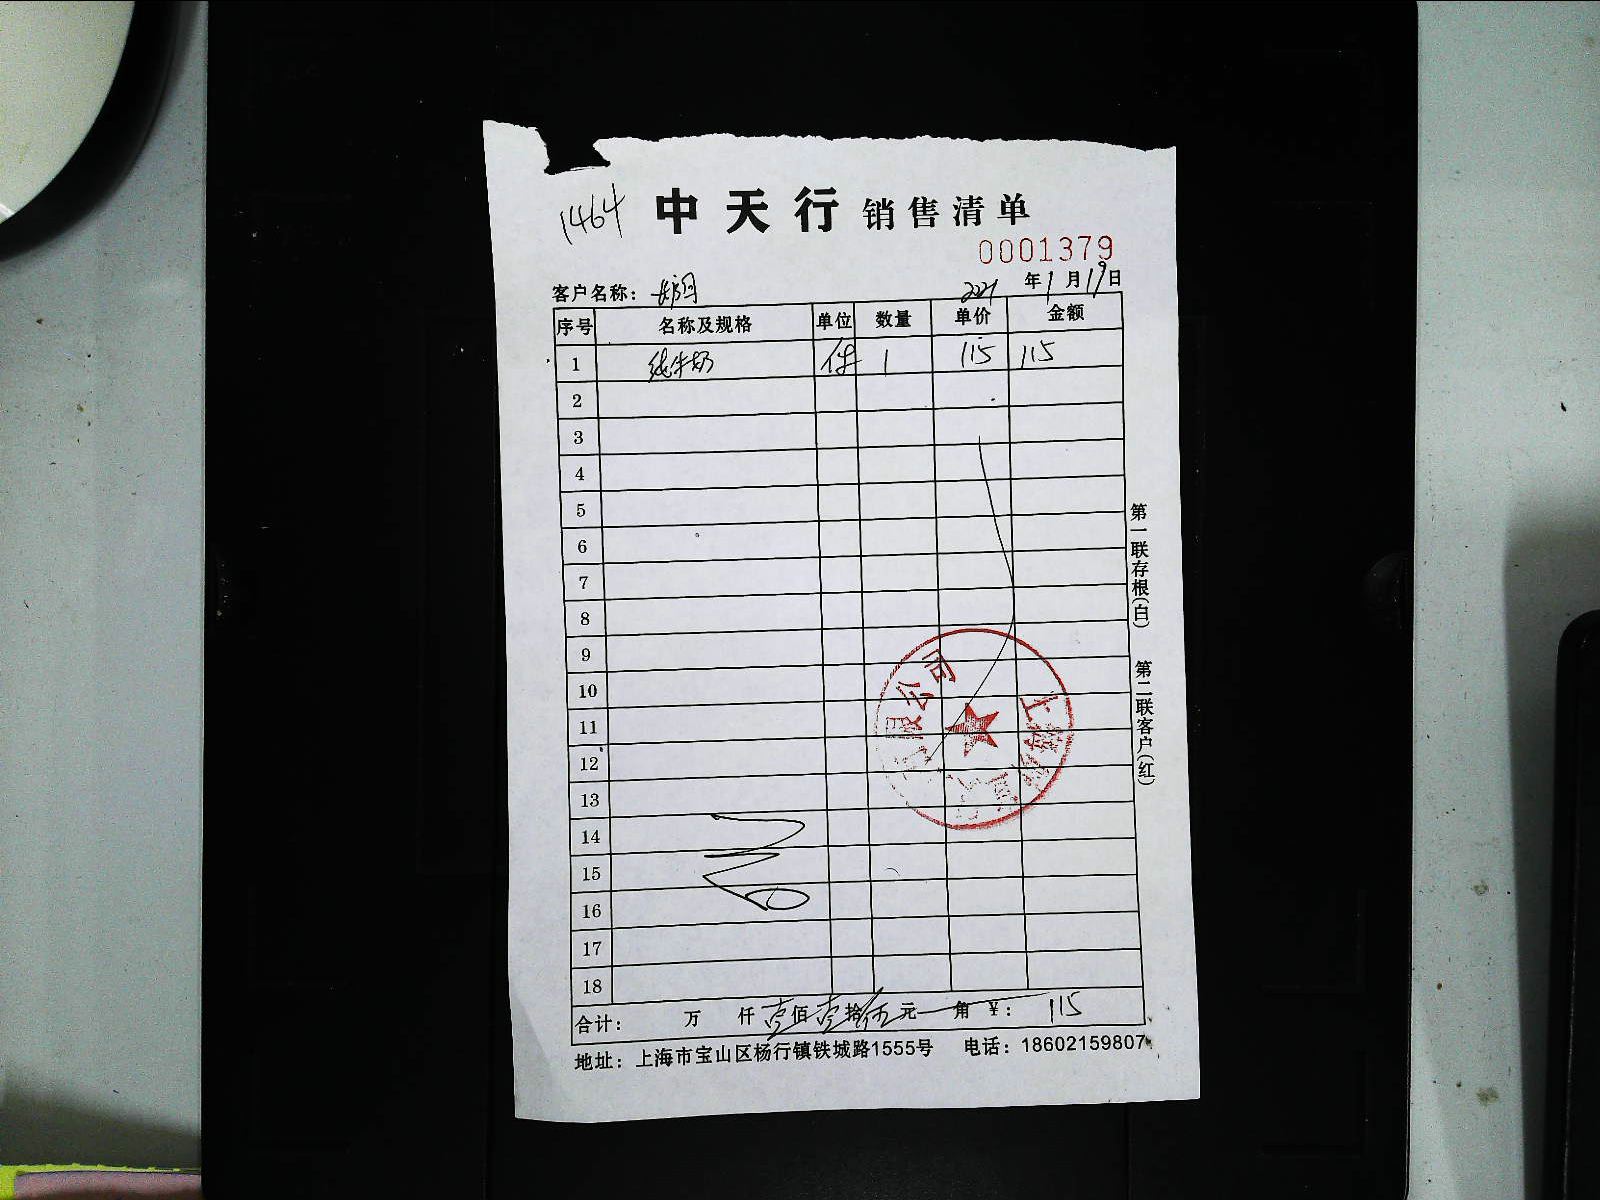 1464
中天行销售清单
0001379
客户名称：
2021年1月19日
序号 名称及规格 单位 数量 单价 金额
1 纯牛奶 件 1 115 115
2
3
4
5
6
7
8
9
10
11
12
13
14
15
16
17
18
合计： 万 仟壹佰壹拾伍元 角 ¥：115
地址：上海市宝山区杨行镇铁城路1555号 电话：18602159807
第一联存根(白) 第二联客户(红)
上海 限公司